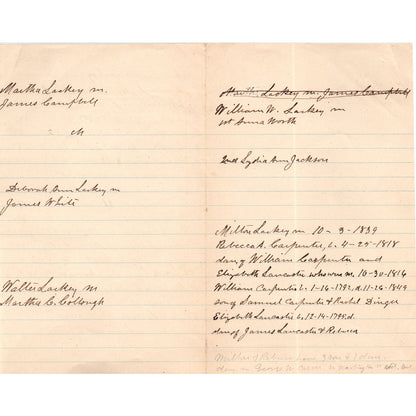 Martha Lackey m.
James Campbell
ch
Deborah Ann Lackey m
James White
Walter Lackey m
Martha C. Colbough
Martha Lackey m. James Campbell
William W. Lackey m
1st Anna North
2nd Lydia Ann Jackson
Milton Lackey m 10-3-1839
Rebecca S. Carpenter, b. 4-25-1818
dau of William Carpenter and
Elizabeth Lancaster who were m. 10-30-1816
William Carpenter b. 1-16-1792, d. 11-26-1849
son of Samuel Carpenter & Rachel Dingee
Elizabeth Lancaster b. 12-14-1795 d.
dau of James Lancaster & Rebecca
Milton & Rebecca have 3 sons & 1 dau.